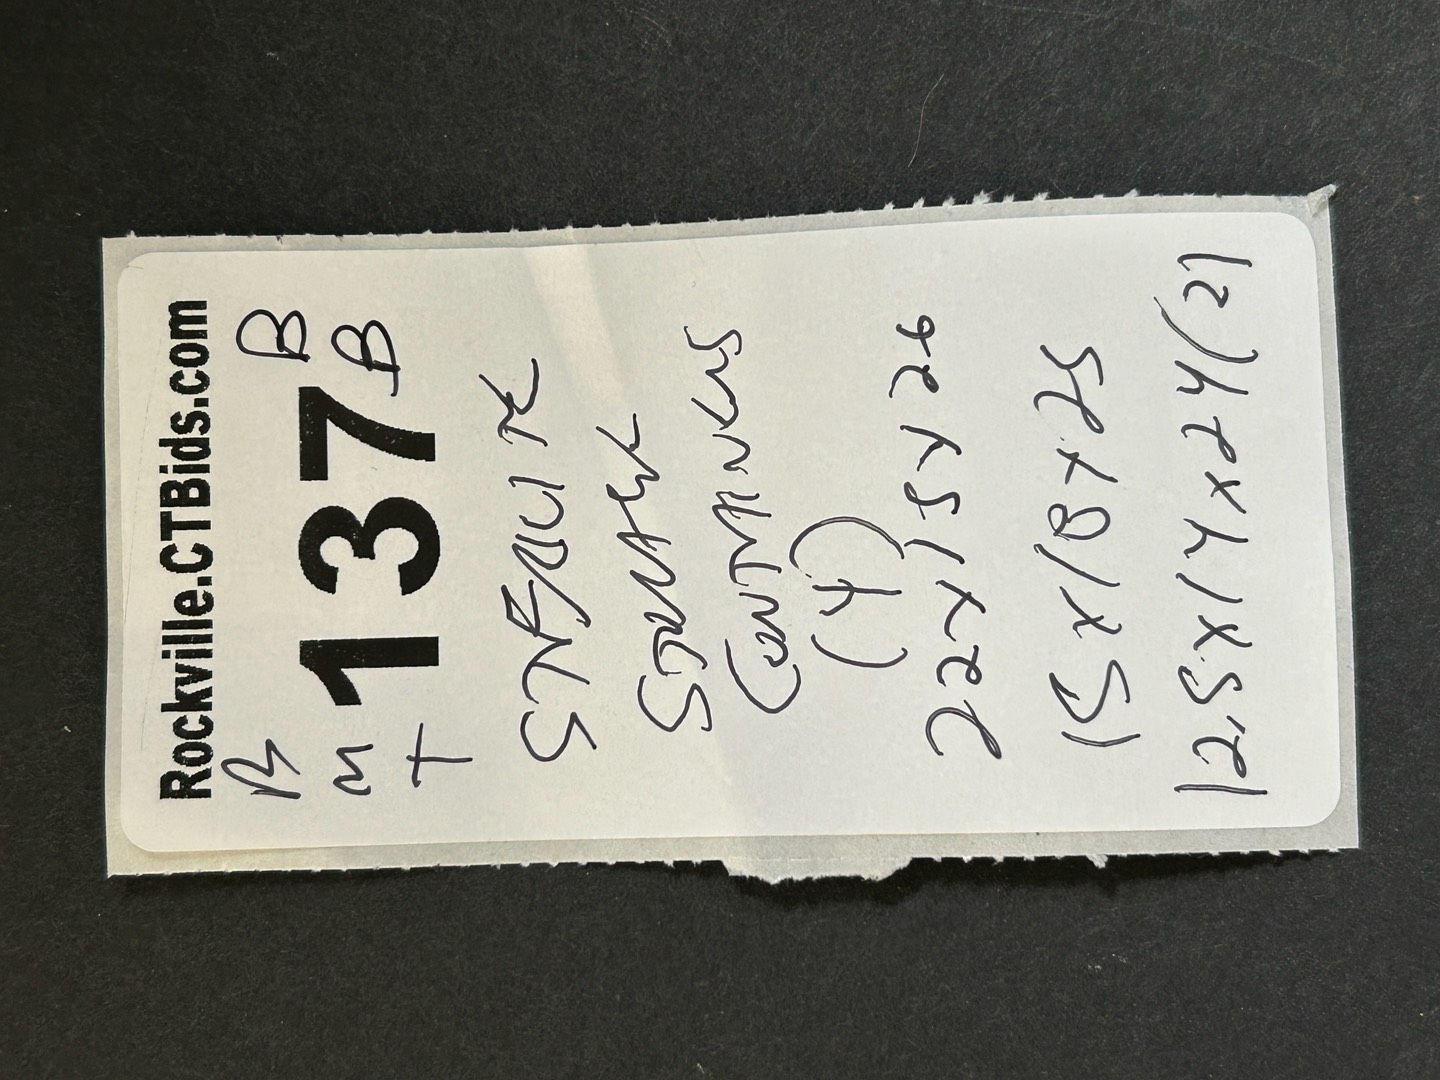 Rockville.CTBids.com
B B
M 137 B
T
STERILITE
STORAGE
CONTAINERS
(4)
22x15x26
15x18x25
12.5x14x24(2)